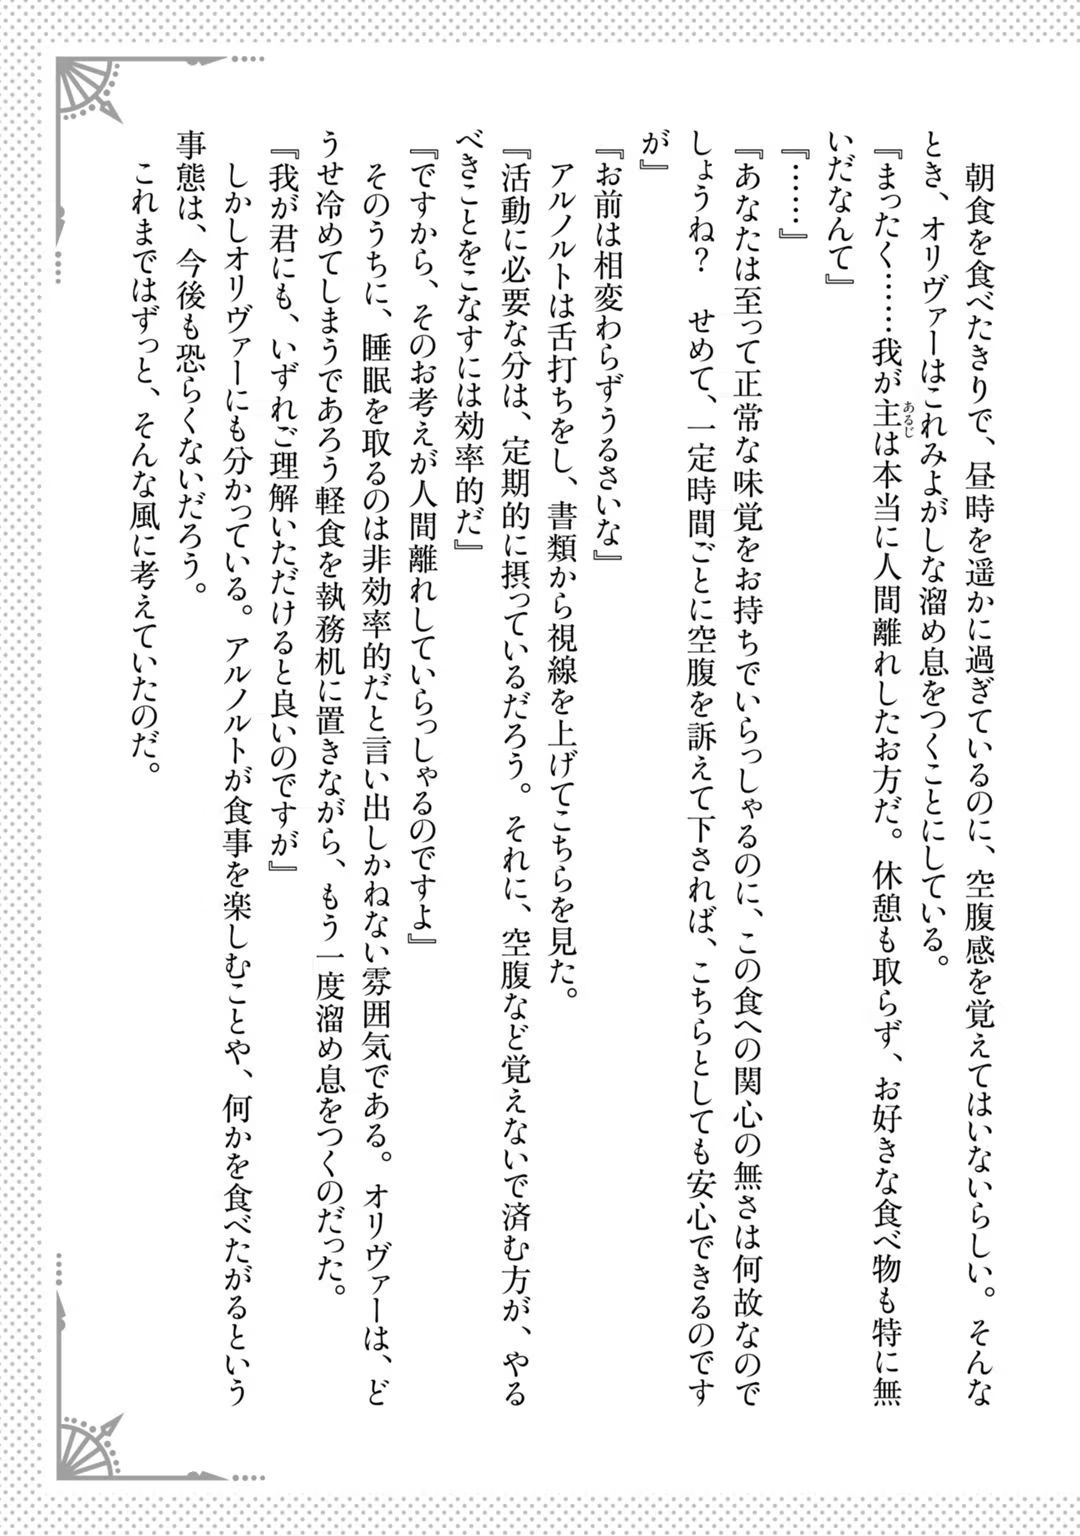 朝食を食べたきりで、昼時を遥かに過ぎているのに、空腹感を覚えてはいないらしい。そんな
とき、オリヴァーはこれみよがしな溜め息をつくことにしている。
『まったく……我が主は本当に人間離れしたお方だ。休憩も取らず、お好きな食べ物も特に無
あるじ
いだなんて』
『……』
『あなたは至って正常な味覚をお持ちでいらっしゃるのに、この食への関心の無さは何故なので
しょうね？　せめて、一定時間ごとに空腹を訴えて下されば、こちらとしても安心できるのです
が』
『お前は相変わらずうるさいな』
アルノルトは舌打ちをし、書類から視線を上げてこちらを見た。
『活動に必要な分は、定期的に摂っているだろう。それに、空腹など覚えないで済む方が、やる
べきことをこなすには効率的だ』
『ですから、そのお考えが人間離れしていらっしゃるのですよ』
そのうちに、睡眠を取るのは非効率的だと言い出しかねない雰囲気である。オリヴァーは、ど
うせ冷めてしまうであろう軽食を執務机に置きながら、もう一度溜め息をつくのだった。
『我が君にも、いずれご理解いただけると良いのですが』
しかしオリヴァーにも分かっている。アルノルトが食事を楽しむことや、何かを食べたがるという
事態は、今後も恐らくないだろう。
これまではずっと、そんな風に考えていたのだ。